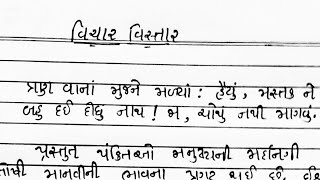 વિચાર વિસ્તાર
પ્રભુ વાનાં મુજને મળ્યાં : હૈયું, મસ્તક ને
બહુ દઈ દીધું નાથ ! જા, ચોથું નથી માગવું.
પ્રસ્તુત પંક્તિઓ મનુષ્યની મર્દાનગી
માનવીની ભાવના પ્રગટ થઈ છે.